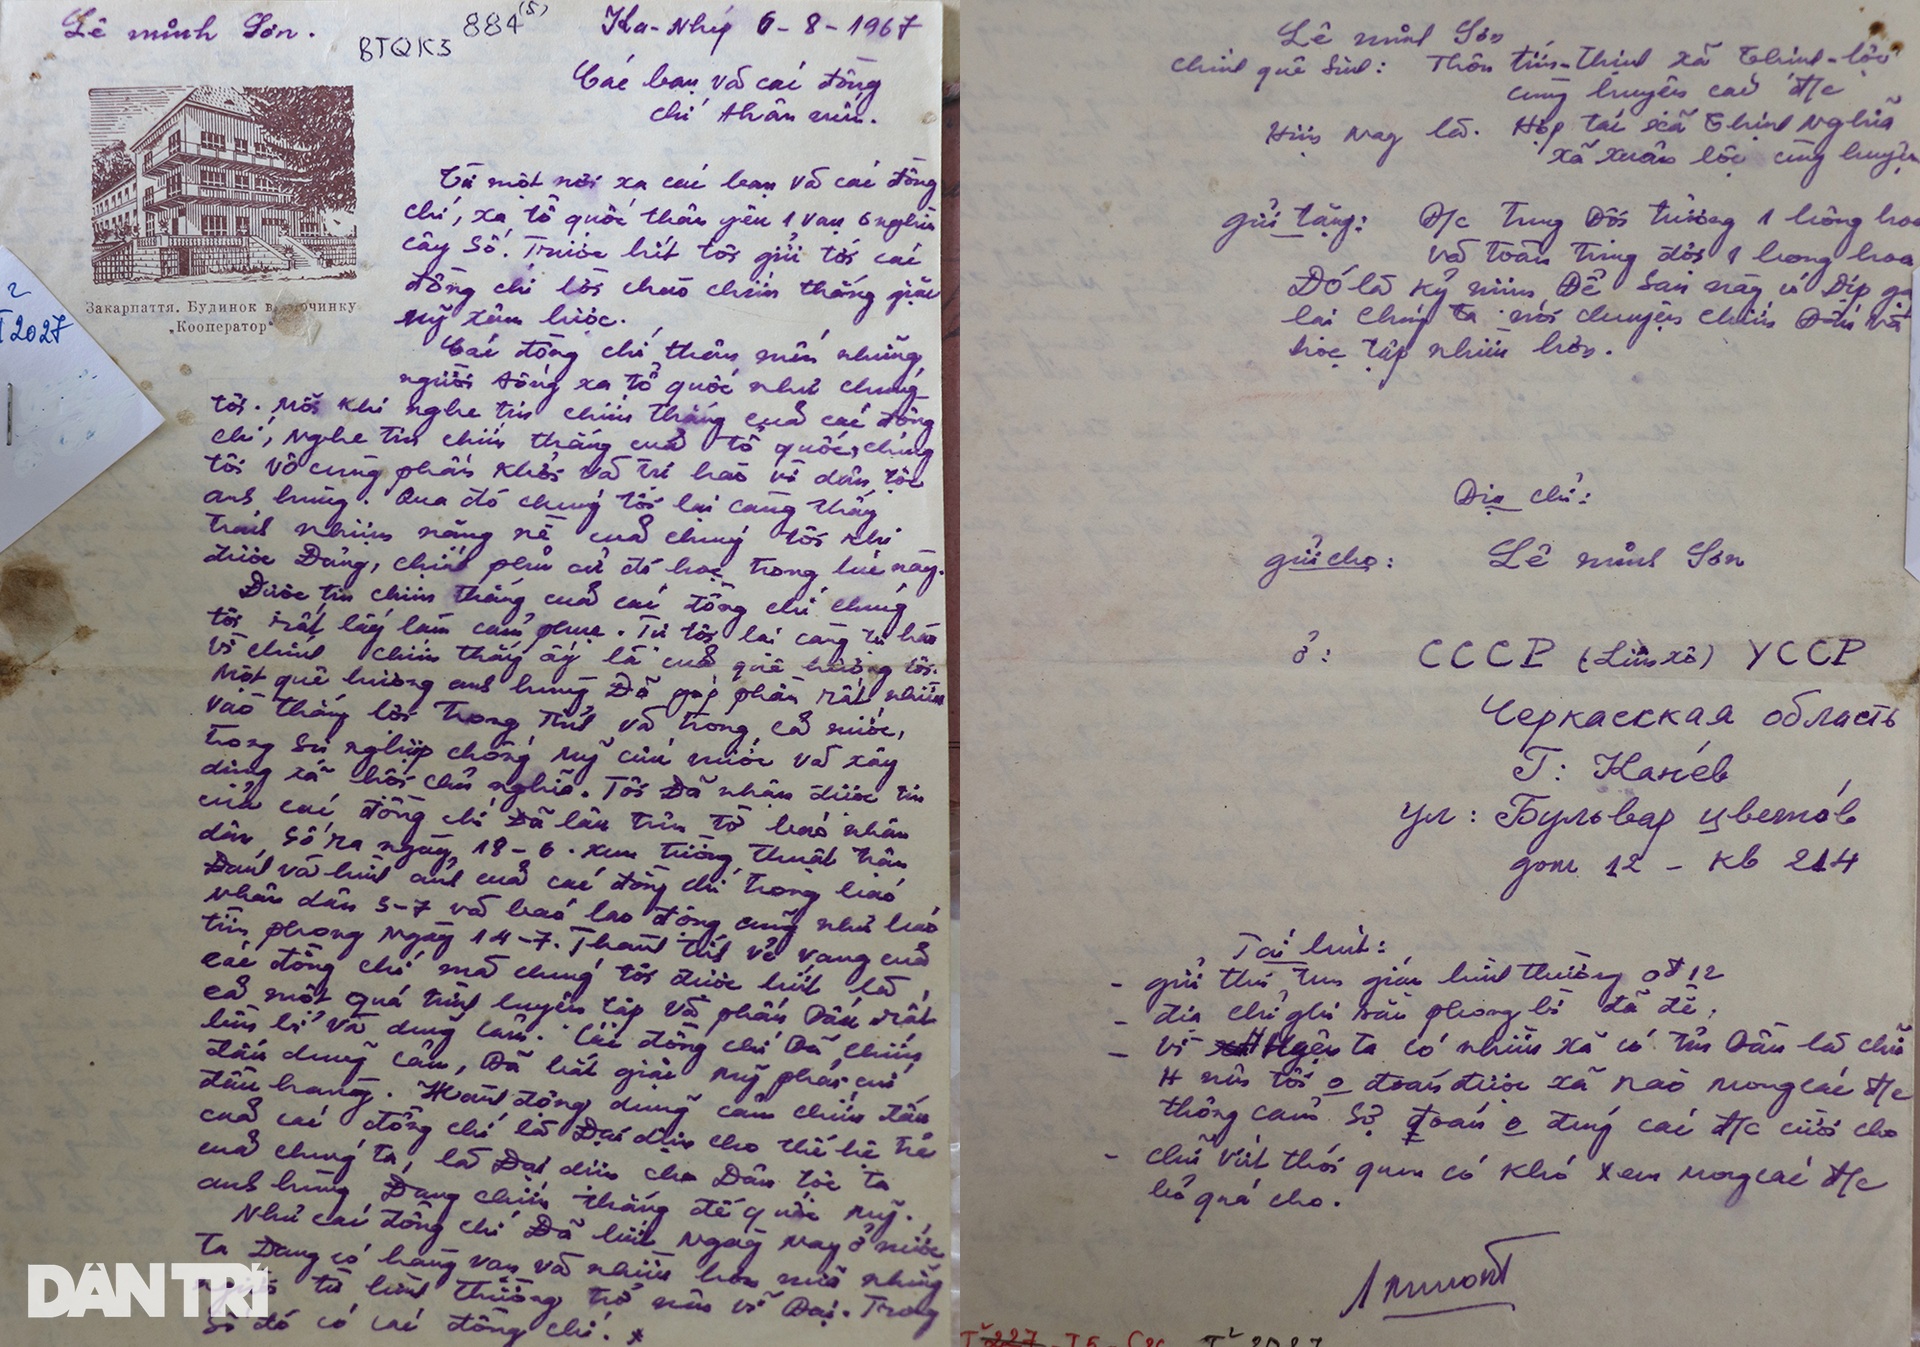 Lê minh Sơn.
BTQK3
884 (5)
Ka-Nhép 6-8-1967
Các bạn và các đồng
chí thân mến.
Закарпаття. Будинок відпочинку
„Кооператор"
T2027
Từ một nơi xa các bạn và các đồng
chí, xa tổ quốc thân yêu 1 vạn 6 nghìn
cây số. Trước hết tôi gửi tới các
đồng chí lời chào chiến thắng giặc
Mỹ xâm lược.
Các đồng chí thân mến những
người sống xa tổ quốc như chúng
tôi. Mỗi khi nghe tin chiến thắng của các đồng
chí, nghe tin chiến thắng của tổ quốc, chúng
tôi vô cùng phấn khởi và tự hào vì dân tộc
anh hùng. Qua đó chúng tôi lại càng thấy
trách nhiệm nặng nề của chúng tôi khi
được Đảng, chính phủ cử đi học trong lúc này.
Được tin chiến thắng của các đồng chí chúng
tôi rất lấy làm cảm phục. Tôi lại càng tự hào
vì chính chiến thắng ấy là của quê hương tôi.
Một quê hương anh hùng Đã góp phần rất nhiều
vào thắng lợi trong tỉnh và trong cả nước,
trong sự nghiệp chống Mỹ cứu nước và xây
dựng xã hội chủ nghĩa. Tôi Đã nhận được tin
của các đồng chí Đã lâu trên tờ báo nhân
dân số ra ngày 18-6. Xem tường thuật trận
Đánh và hình ảnh của các đồng chí trong báo
Nhân dân 5-7 và báo lao động cũng như báo
tiền phong ngày 14-7. Thành tích vẻ vang của
các đồng chí mà chúng tôi được biết là
cả một quá trình luyện tập và phấn Đấu rất
bền bỉ và dũng cảm. Các đồng chí Đã chiến
đấu dũng cảm, Đã bắt giặc Mỹ phải cúi
đầu hàng. Hành động dũng cảm chiến đấu
của các đồng chí là Đại diện cho thế hệ trẻ
của chúng ta, là Đại diện cho Dân tộc ta
anh hùng Đang chiến thắng đế quốc Mỹ.
Như các đồng chí Đã biết Ngày nay ở nước
ta Đang có hàng vạn và nhiều hơn nữa những
người từ bình thường trở nên vĩ Đại. Trong
số đó có các đồng chí.
DÂN TRÍ
Lê minh Sơn
chính quê sinh: Thôn tiến-Thịnh xã Thịnh-lộc
cùng huyện các đ/c
Hiện nay là. Hợp tác xã Thịnh Nghĩa
xã xuân lộc cùng huyện
gửi tặng: Đ/c Trung Đội trưởng 1 bông hoa
và toàn trung đội 1 bông hoa
Đó là kỷ niệm Để sau này có Dịp gặp
lại chúng ta nói chuyện chiến Đấu và
học tập nhiều hơn.
Địa chỉ:
gửi cho: Lê minh Sơn
ở: СССР (Liên xô) УССР
Черкасская область
Г: Канёв
ул: Бульвар цветов
дом 12 - кв 214
Tái bút:
- gửi thư tem giá bình thường 0đ12
- địa chỉ ghi trên phong bì đã đề,
- Vì Huyện ta có nhiều xã có tên Đầu là chữ
H nên tôi o đoán được xã nào mong các đ/c
thông cảm sợ đoán o đúng các đ/c cười cho
- chữ viết thói quen có khó xem mong các đ/c
bỏ quá cho.
T5